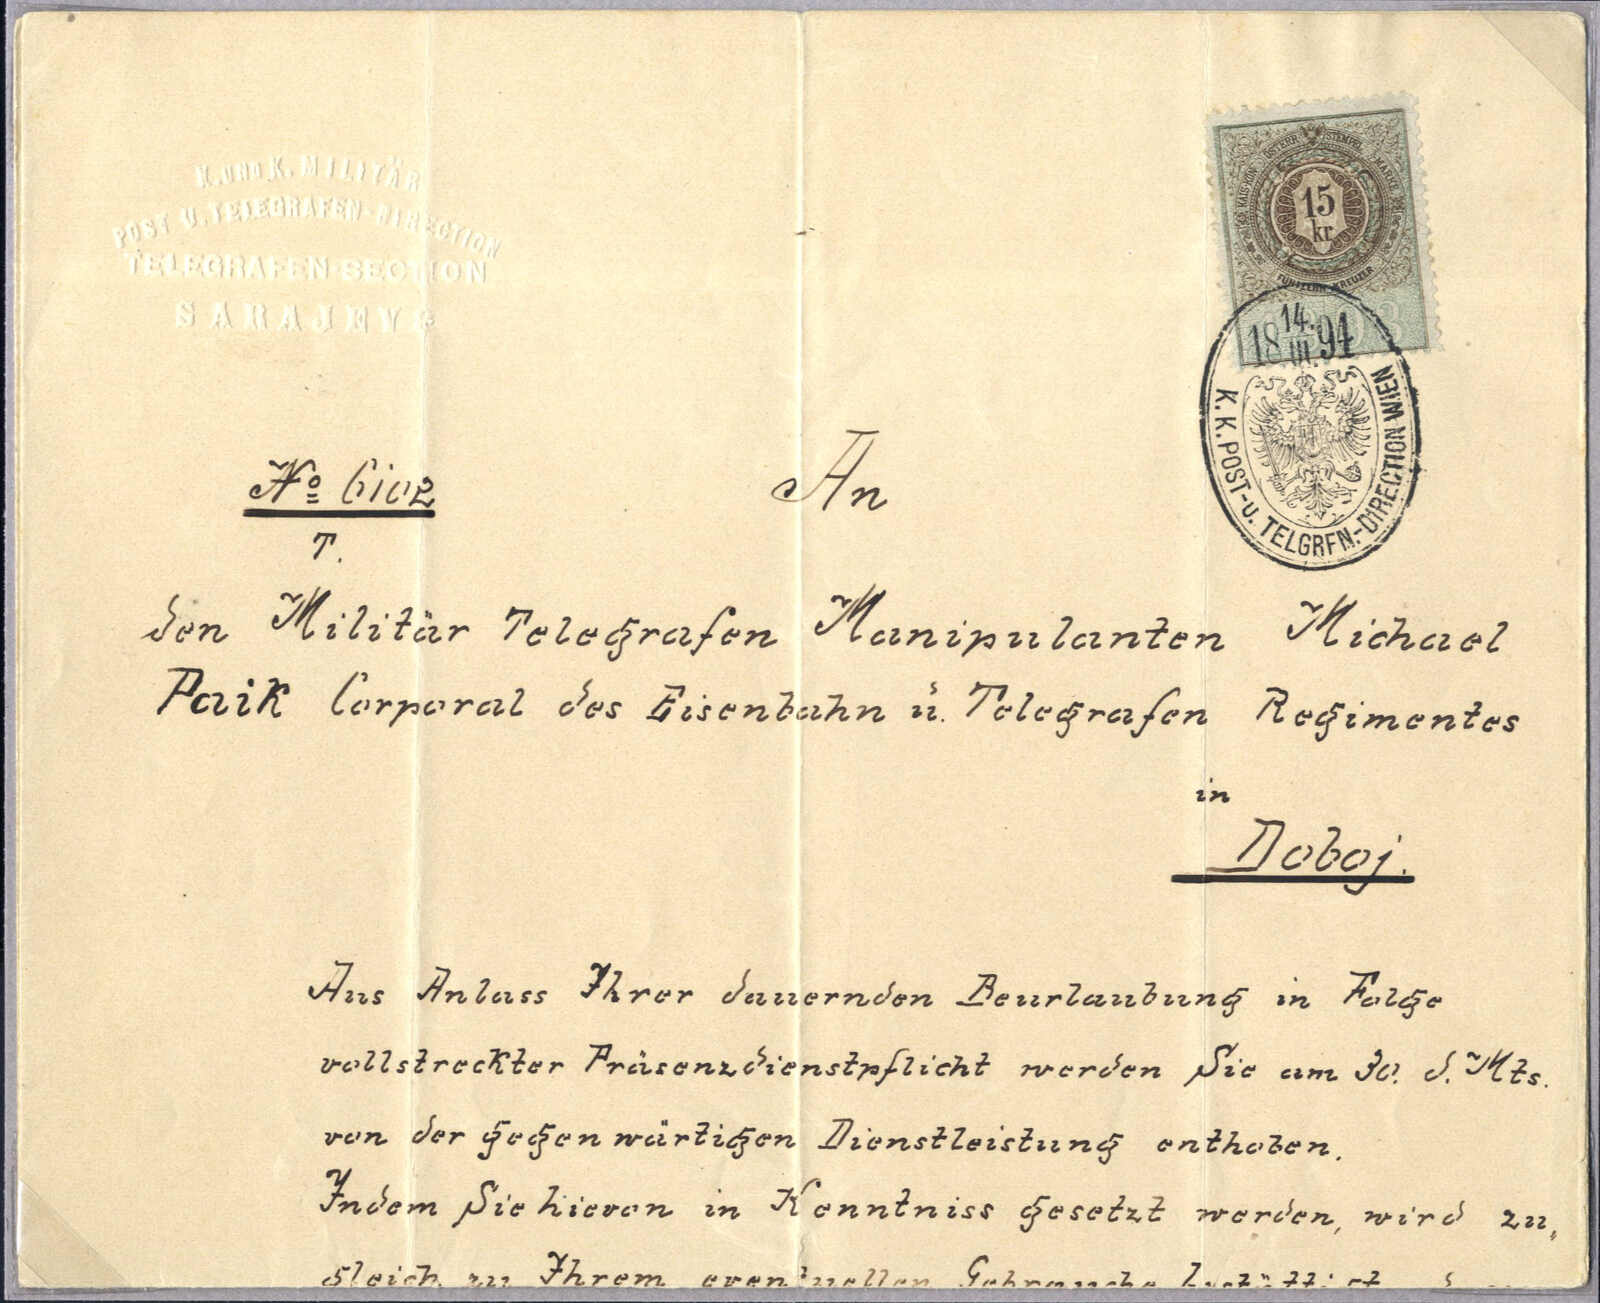 K. UND K. MILITÄR
POST U. TELEGRAFEN-DIRECTION
TELEGRAFEN-SECTION
SARAJEVO
KAIS. KÖN. ÖSTERR. STEMPEL MARKE
15
kr.
FÜNFZEHN KREUZER
14.
18 94
III.
K. K. POST-u. TELGRFN.-DIRECTION WIEN
No 6102
T.
An
den Militär Telegrafen Manipulanten Michael
Paik Corporal des Eisenbahn u. Telegrafen Regimentes
in
Doboj.
Aus Anlass Ihrer dauernden Beurlaubung in Folge
vollstreckter Präsenzdienstpflicht werden Sie am 30. d. Mts.
von der gegenwärtigen Dienstleistung enthoben.
Indem Sie hievon in Kenntniss gesetzt werden, wird zu,
gleich zu Ihrem eventuellen Gebrauche bestättigt